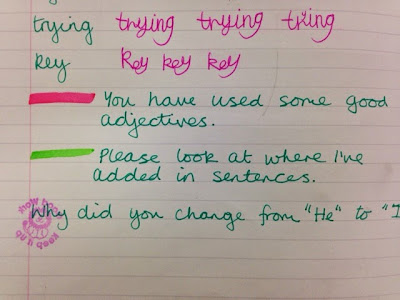 trying trying trying trying
key Key key key
You have used some good
adjectives.
Please look at where I've
added in sentences.
Why did you change from "He" to "I